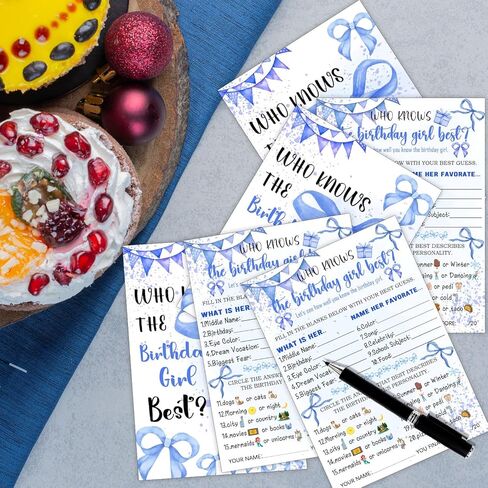 WHO KNOWS
WHO KNOWS
THE
Birth
WHO KNOWS
birthday girl best?
how well you know the birthday girl.
WITH YOUR BEST GUESS.
NAME HER FAVORITE...
Subject:
BEST DESCRIBES
PERSONALITY.
or Winter
or Dancing
or
or
/20
WHO
THE
Birthday
Girl
Best?
WHO KNOWS
the birthday
Let's
FILL IN THE BLANKS
WHAT IS HER
1.Middle Name:
2.Birthday:
3.Eye Color:
4.Dream Vacation:
5.Biggest Fear:
CIRCLE THE ANSWER
THE BIRTHDAY
11.dogs or cats
12.Morning or night
13.city or country
14.movies or books
15.mermaids or unicorns
YOUR NAME:
WHO KNOWS
the birthday girl best?
Let's see how well you know the birthday girl.
FILL IN THE BLANKS BELOW WITH YOUR BEST GUESS.
WHAT IS HER...
NAME HER FAVORITE...
1.Middle Name:
2.Birthday:
3.Eye Color:
4.Dream
5.Biggest Fear:
6.Color:
7.Song:
8.Celebrity:
9.School Subject:
10.Food:
CIRCLE THE ANSWER THAT BEST DESCRIBES
THE BIRTHDAY PERSONALITY.
11.dogs or cats
12.Morning or night
13.city or country
14.movies or books
15.mermaids or unicorns
or Winter
or Dancing
YOUR NAME: